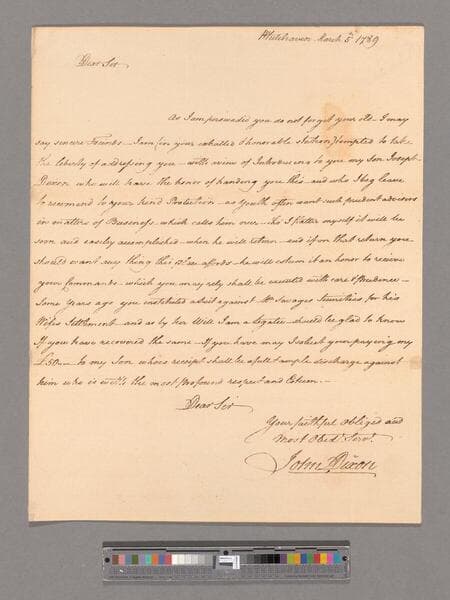 Whitehaven March 5th 1789
Dear Sir
As I am perswaded you do not forget your old - I may
say sincere Friends - I am (in your exhalted & honorable Station) tempted to take
the liberty of addressing you - with view of Introduceing to you my Son Joseph
Dixon who will have the honor of handing you this - and who I beg leave
to recomend to your kind Protection - as youth often want such prudent advisors
in matters of Bussness, which calls him over - tho' I flatter myself it will be
soon and easily accomplished - when he will return - and if on that return you
should want any thing this place affords - he will esteem it an honor to receive
your Commands - which you may rely shall be executed with care & Prudence -
Some years ago you instituted a Suit against Mr Savages Securities for his
Wifes Settlement - and as by her Will I am a legatee - should be glad to know
If you have recovered the same - If you have may I solicit your paying my
£50 - to my Son whoes receipt shall be a full & ample discharge against
him who is with the most profound respect and Esteem. -
Dear Sir
Your faithful obliged and
most Obedt Servt
John Dixon